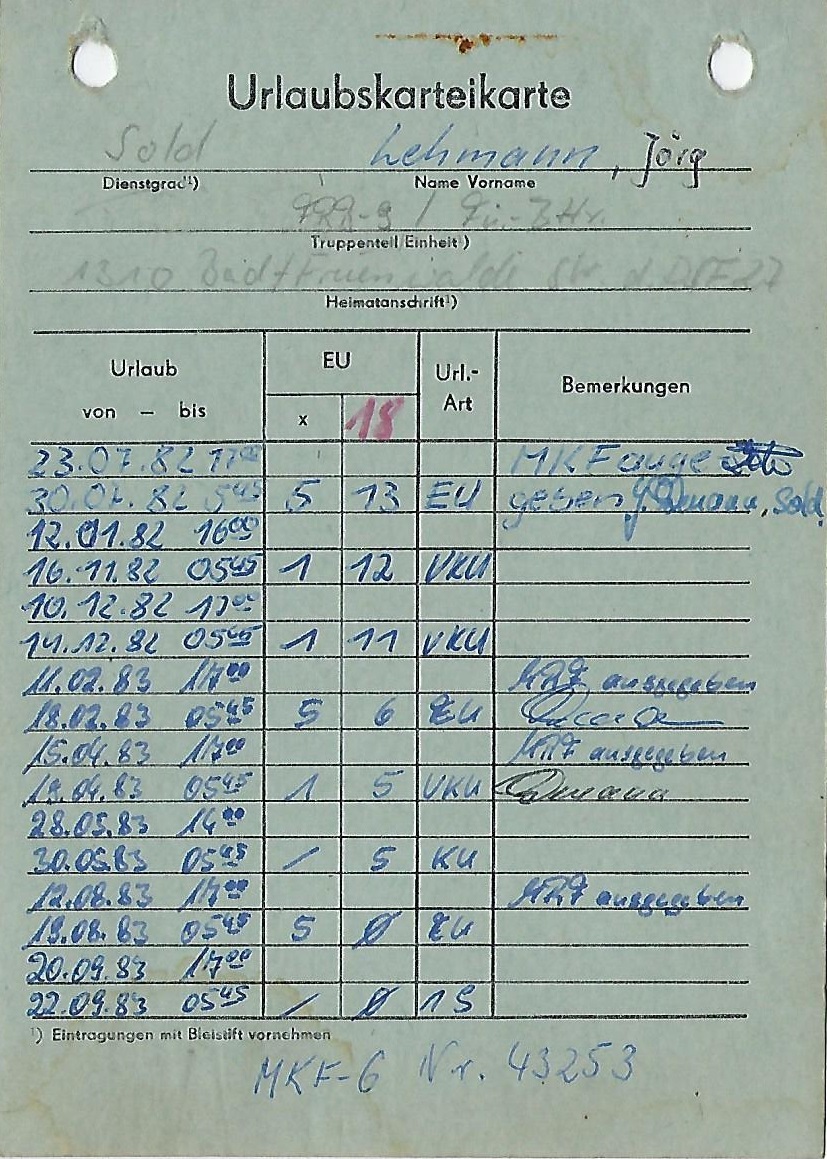 Urlaubskarteikarte
Sold Lehmann, Jörg
Dienstgrad¹) Name Vorname
Truppenteil/Einheit¹)
1310 Bad
Heimatanschrift¹)
Urlaub EU Url.- Bemerkungen
von – bis x 18 Art
23.07.82 17⁰⁰ MKF ange
30.07.82 5⁴⁵ 5 13 EU geben Sold.
12.01.82 16⁰⁰
16.11.82 05⁴⁵ 1 12 VKU
10.12.82 17⁰⁰
14.12.82 05⁴⁵ 1 11 VKU
11.02.83 17⁰⁰ MKF ausgegeben
18.02.83 05⁴⁵ 5 6 EU
15.04.83 17⁰⁰ MKF ausgegeben
19.04.83 05⁴⁵ 1 5 VKU
28.05.83 14⁰⁰
30.05.83 05⁴⁵ / 5 KU
12.08.83 17⁰⁰ MKF ausgegeben
19.08.83 05⁴⁵ 5 Ø EU
20.09.83 17⁰⁰
22.09.83 05⁴⁵ / Ø 1S
¹) Eintragungen mit Bleistift vornehmen
MKF-6 Nr. 43253